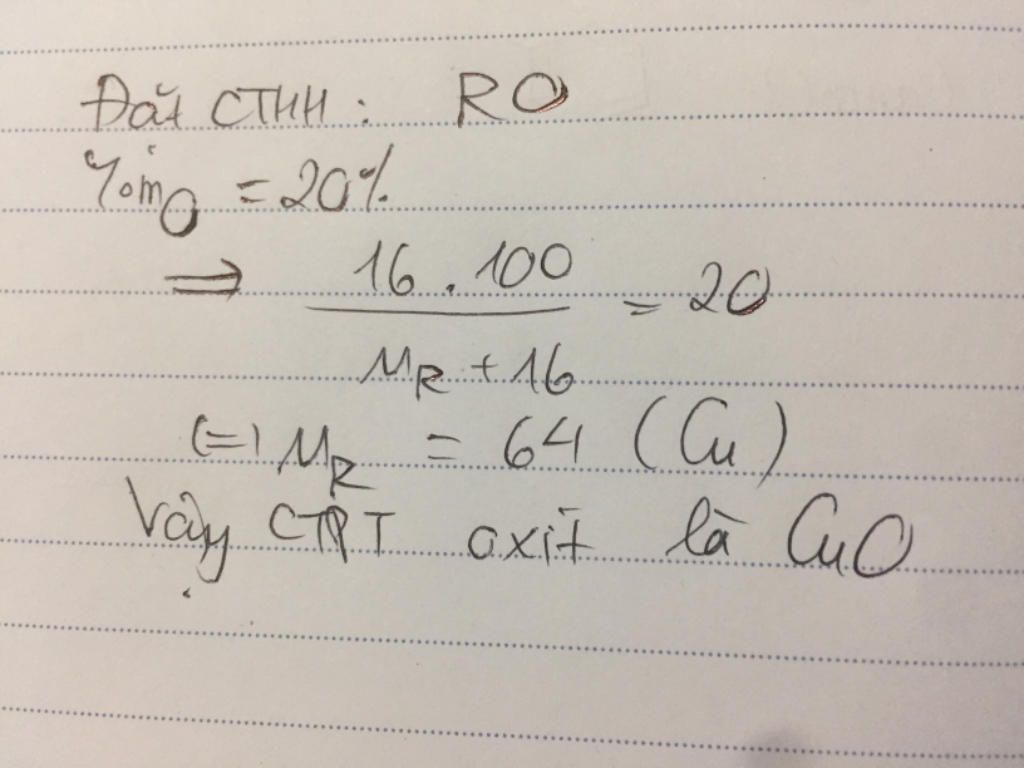 Đặt CTHH : RO
%mO = 20%
⇒ 16 . 100 / MR + 16 = 20
(=) MR = 64 (Cu)
Vậy CTPT oxit là CuO